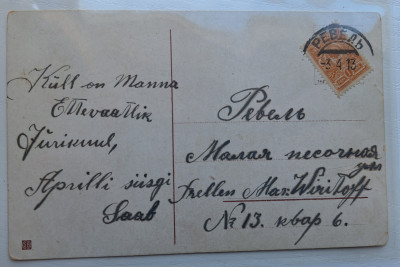 Küll on Manna
Ettevaatlik
Jürikuul,
Aprilli siisgi
Saab
РЕВЕЛЬ
-3 4 13
Ревель
Малая песочная
Frellen Mar.
№ 13. квар 6.